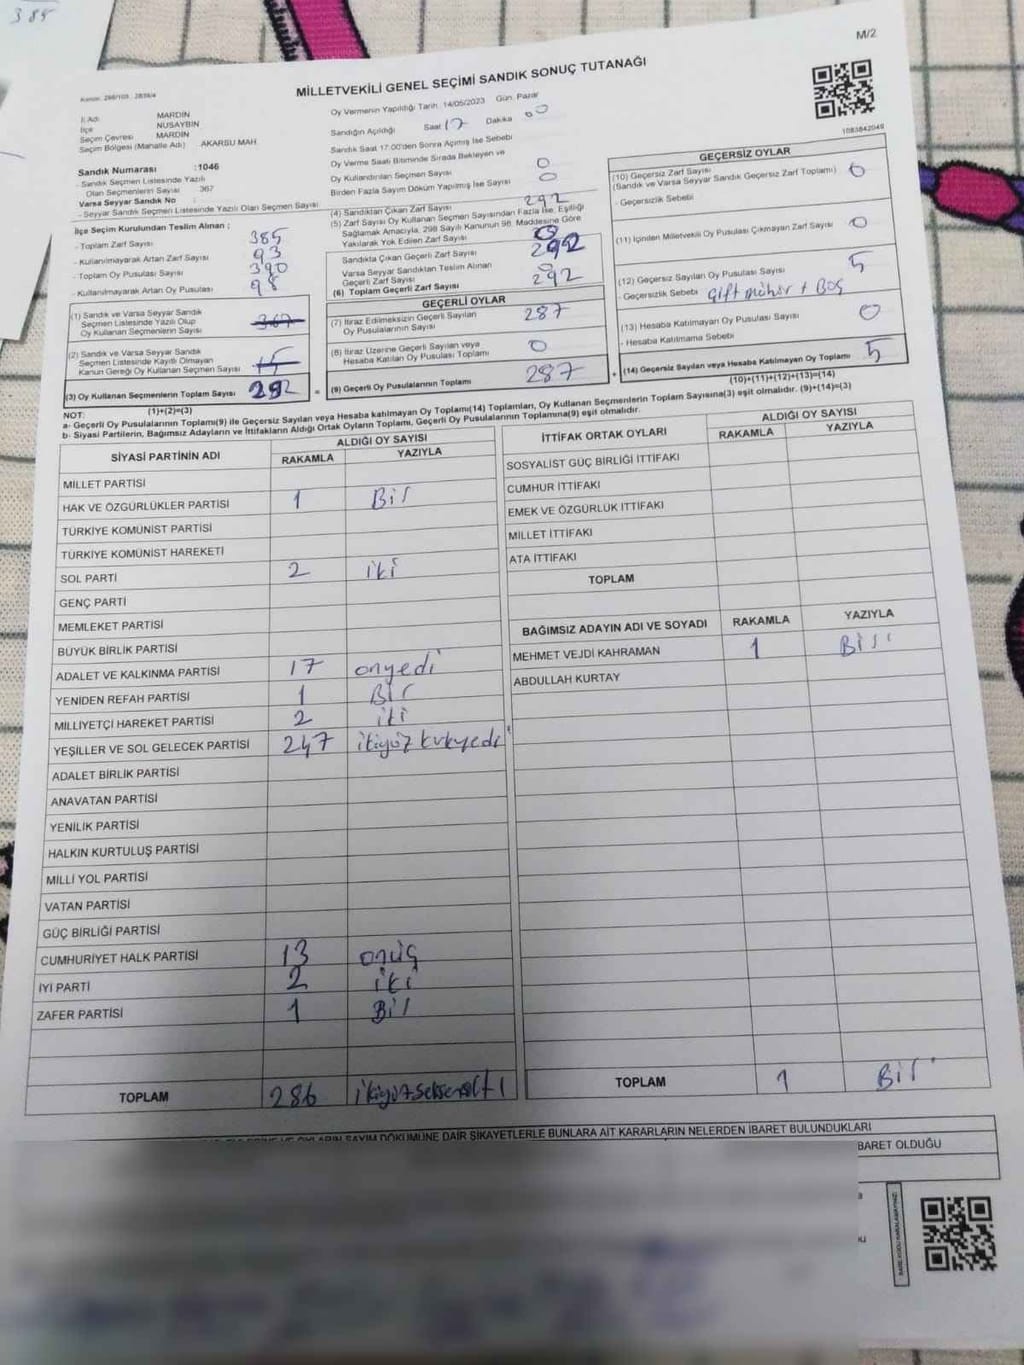 385
M/2
MİLLETVEKİLİ GENEL SEÇİMİ SANDIK SONUÇ TUTANAĞI
İl Adı MARDİN
İlçe NUSAYBİN
Seçim Çevresi MARDİN
Seçim Bölgesi (Mahalle Adı) AKARSU MAH
Sandık Numarası : 1046
- Sandık Seçmen Listesinde Yazılı
Olan Seçmenlerin Sayısı 367
Varsa Seyyar Sandık No
- Seyyar Sandık Seçmen Listesinde Yazılı Olan Seçmen Sayısı
Oy Vermenin Yapıldığı Tarih 14/05/2023 Gün. Pazar
Sandığın Açıldığı Saat 17 Dakika 00
Sandık Saat 17:00'den Sonra Açılmış İse Sebebi
Oy Verme Saati Bitiminde Sırada Bekleyen ve
Oy Kullandırılan Seçmen Sayısı 0
Birden Fazla Sayım Döküm Yapılmış İse Sayısı 0
1083842045
İlçe Seçim Kurulundan Teslim Alınan ;
- Toplam Zarf Sayısı 385
- Kullanılmayarak Artan Zarf Sayısı 93
- Toplam Oy Pusulası Sayısı 390
- Kullanılmayarak Artan Oy Pusulası 98
(1) Sandık ve Varsa Seyyar Sandık
Seçmen Listesinde Yazılı Olup
Oy Kullanan Seçmenlerin Sayısı 367
(2) Sandık ve Varsa Seyyar Sandık
Seçmen Listesinde Kayıtlı Olmayan
Kanun Gereği Oy Kullanan Seçmen Sayısı
(3) Oy Kullanan Seçmenlerin Toplam Sayısı 292 =
(1)+(2)=(3)
(4) Sandıktan Çıkan Zarf Sayısı 292
(5) Zarf Sayısı Oy Kullanan Seçmen Sayısından Fazla İse, Eşitliği
Sağlamak Amacıyla, 298 Sayılı Kanunun 98. Maddesine Göre
Yakılarak Yok Edilen Zarf Sayısı 0
Sandıkta Çıkan Geçerli Zarf Sayısı 292
Varsa Seyyar Sandıktan Teslim Alınan
Geçerli Zarf Sayısı 0
(6) Toplam Geçerli Zarf Sayısı 292
GEÇERLİ OYLAR
(7) İtiraz Edilmeksizin Geçerli Sayılan
Oy Pusulalarının Sayısı 287
(8) İtiraz Üzerine Geçerli Sayılan veya
Hesaba Katılan Oy Pusulası Toplamı 0
(9) Geçerli Oy Pusulalarının Toplamı 287 +
GEÇERSİZ OYLAR
(10) Geçersiz Zarf Sayısı 0
(Sandık ve Varsa Seyyar Sandık Geçersiz Zarf Toplamı)
- Geçersizlik Sebebi
(11) İçinden Milletvekili Oy Pusulası Çıkmayan Zarf Sayısı 0
(12) Geçersiz Sayılan Oy Pusulası Sayısı 5
- Geçersizlik Sebebi Çift mühür + Boş
(13) Hesaba Katılmayan Oy Pusulası Sayısı 0
- Hesaba Katılmama Sebebi
(14) Geçersiz Sayılan veya Hesaba Katılmayan Oy Toplamı 5
(10)+(11)+(12)+(13)=(14)
NOT:
a- Geçerli Oy Pusulalarının Toplamı(9) ile Geçersiz Sayılan veya Hesaba katılmayan Oy Toplamı(14) Toplamları, Oy Kullanan Seçmenlerin Toplam Sayısına(3) eşit olmalıdır. (9)+(14)=(3)
b- Siyasi Partilerin, Bağımsız Adayların ve İttifakların Aldığı Ortak Oyların Toplamı, Geçerli Oy Pusulalarının Toplamına(9) eşit olmalıdır.
SİYASİ PARTİNİN ADI ALDIĞI OY SAYISI
RAKAMLA YAZIYLA
MİLLET PARTİSİ
HAK VE ÖZGÜRLÜKLER PARTİSİ 1 Bir
TÜRKİYE KOMÜNİST PARTİSİ
TÜRKİYE KOMÜNİST HAREKETİ
SOL PARTİ 2 iki
GENÇ PARTİ
MEMLEKET PARTİSİ
BÜYÜK BİRLİK PARTİSİ
ADALET VE KALKINMA PARTİSİ 17 onyedi
YENİDEN REFAH PARTİSİ 1 Bir
MİLLİYETÇİ HAREKET PARTİSİ 2 iki
YEŞİLLER VE SOL GELECEK PARTİSİ 247 ikiyüz kırkyedi
ADALET BİRLİK PARTİSİ
ANAVATAN PARTİSİ
YENİLİK PARTİSİ
HALKIN KURTULUŞ PARTİSİ
MİLLİ YOL PARTİSİ
VATAN PARTİSİ
GÜÇ BİRLİĞİ PARTİSİ
CUMHURİYET HALK PARTİSİ 13 onüç
İYİ PARTİ 2 iki
ZAFER PARTİSİ 1 Bir
TOPLAM 286 ikiyüzseksenaltı
İTTİFAK ORTAK OYLARI ALDIĞI OY SAYISI
RAKAMLA YAZIYLA
SOSYALİST GÜÇ BİRLİĞİ İTTİFAKI
CUMHUR İTTİFAKI
EMEK VE ÖZGÜRLÜK İTTİFAKI
MİLLET İTTİFAKI
ATA İTTİFAKI
TOPLAM
BAĞIMSIZ ADAYIN ADI VE SOYADI RAKAMLA YAZIYLA
MEHMET VEJDİ KAHRAMAN 1 Bir
ABDULLAH KURTAY
TOPLAM 1 Bir
OYLARIN SAYIM DÖKÜMÜNE DAİR ŞİKAYETLERLE BUNLARA AİT KARARLARIN NELERDEN İBARET BULUNDUKLARI
BARET OLDUĞU